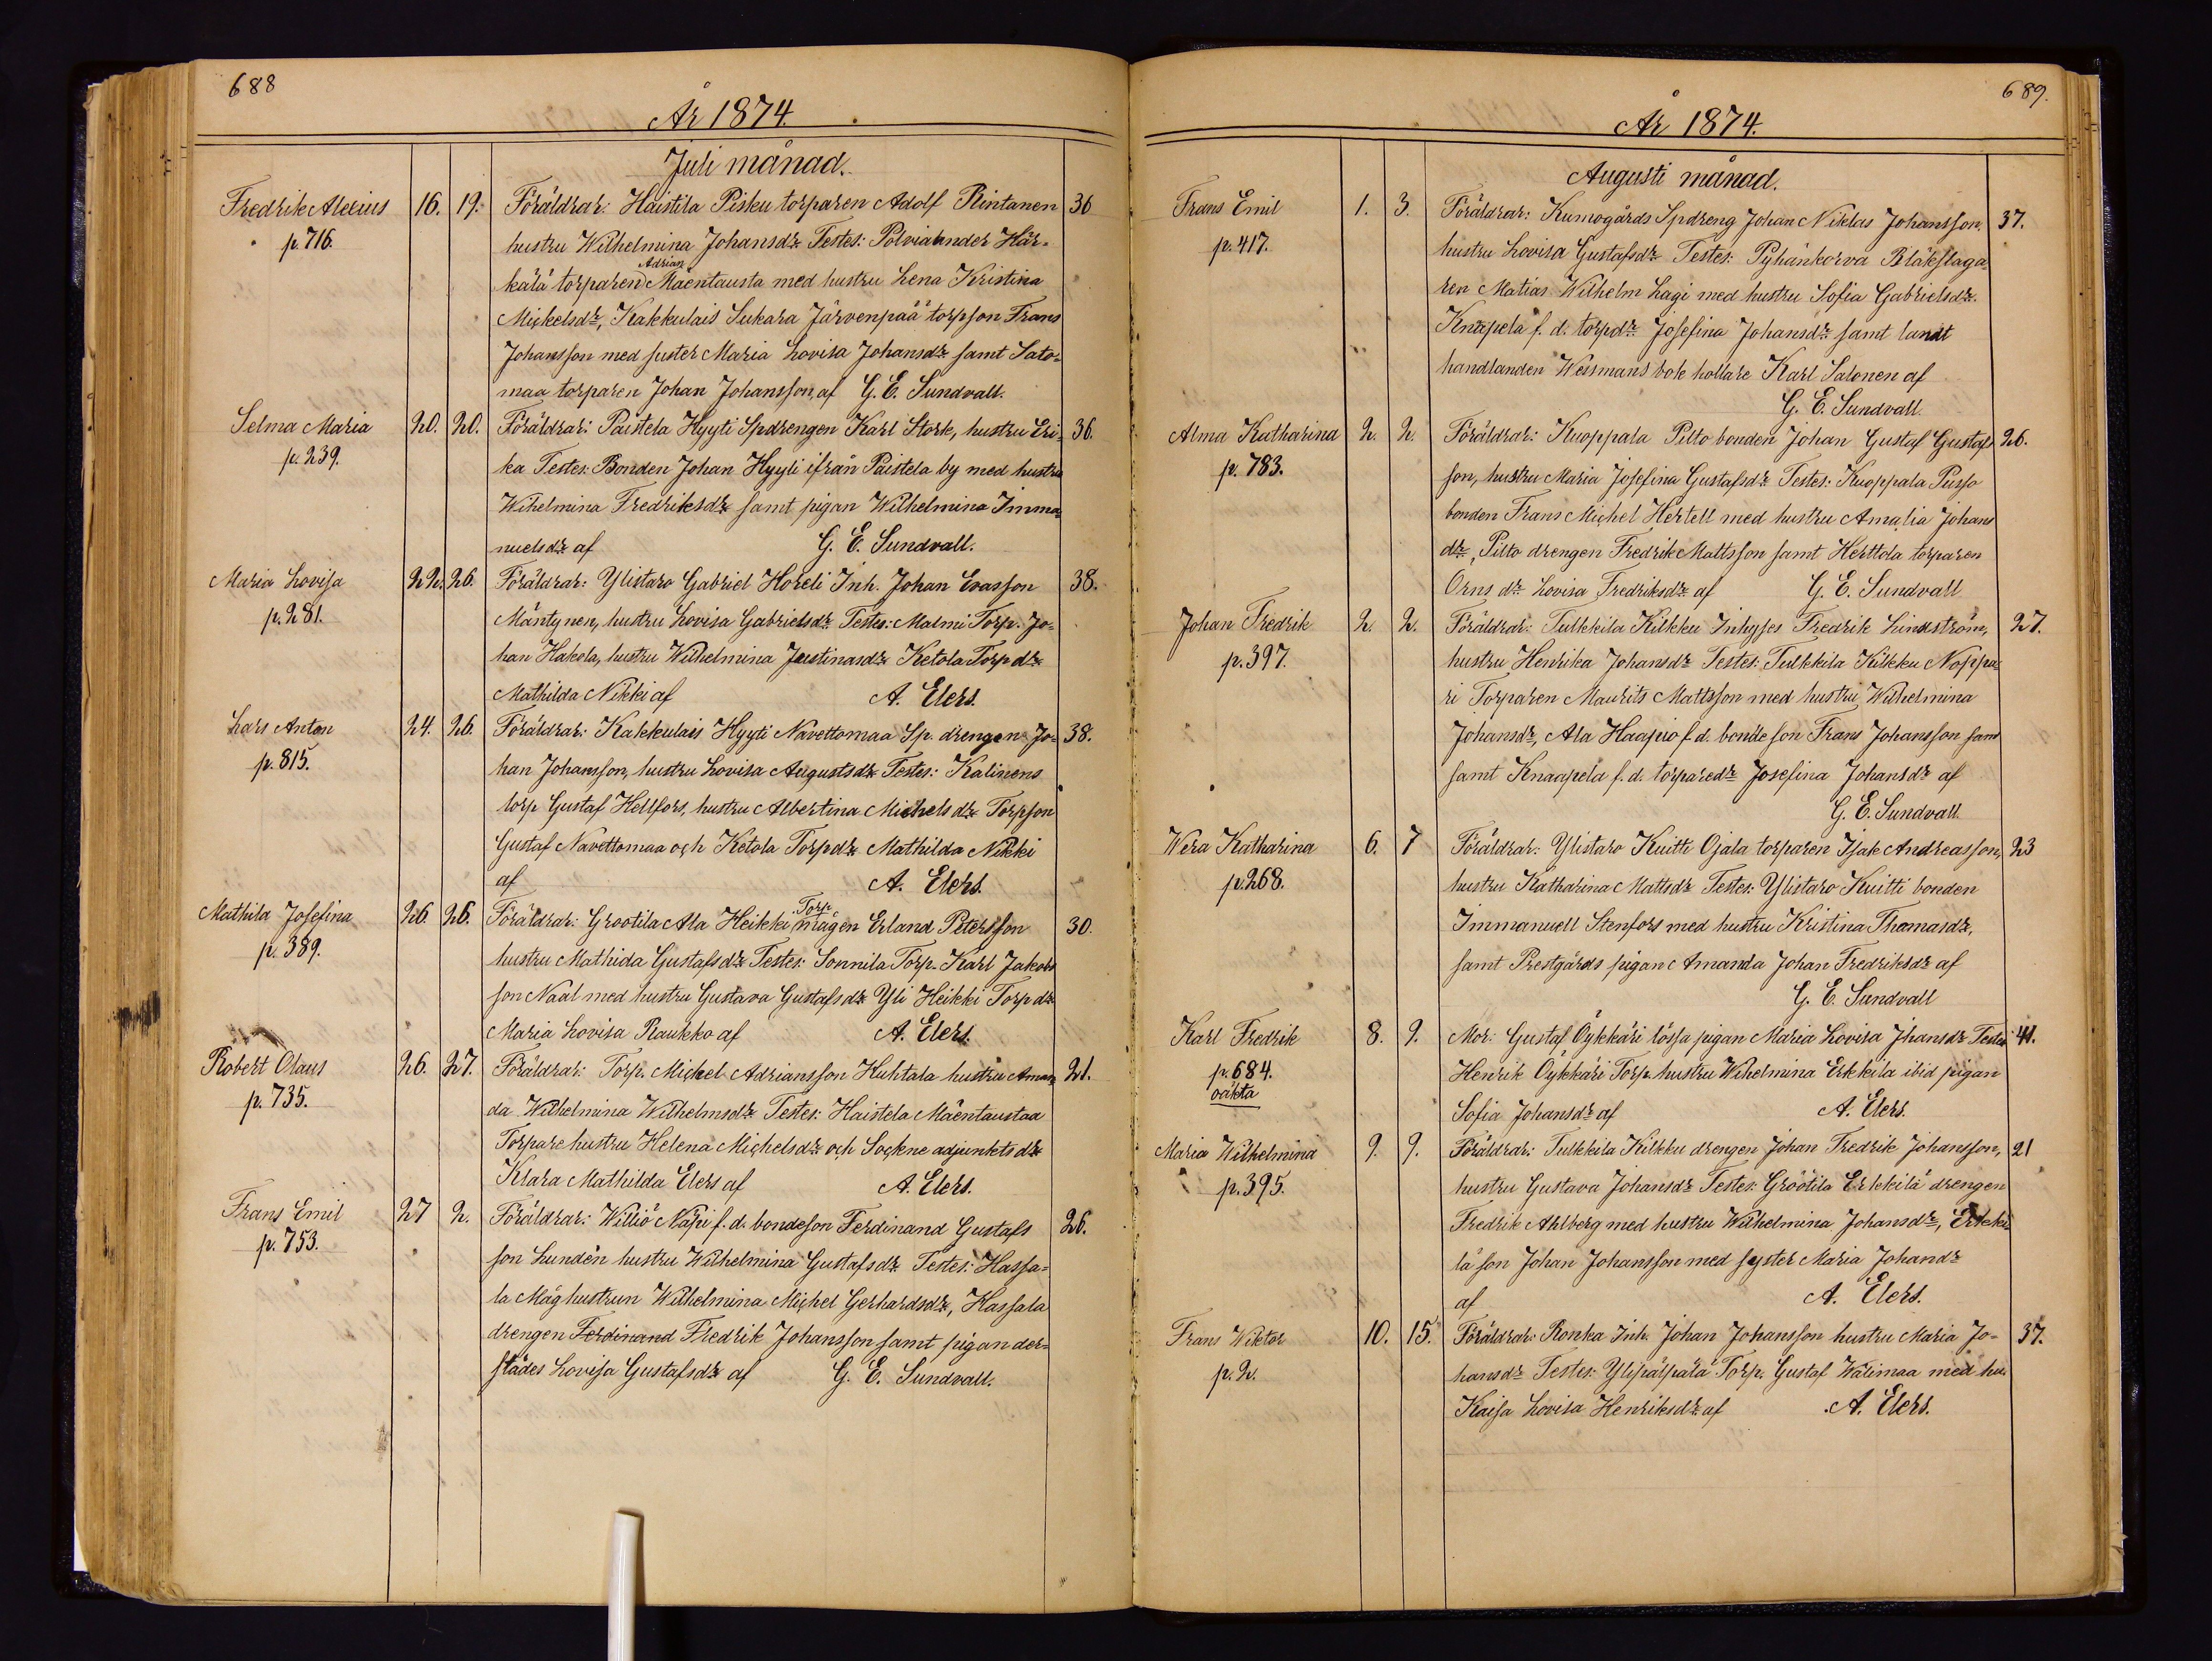 688
År 1874.
Juli månad.
Fredrik Alexius 16. 19. Föräldrar: Haistila Pisku torparen Adolf Rintanen 36
p. 716. hustru Wilhelmina Johansdr Testes: Polviander Här-
kälä torparen Adrian Mäentausta med hustru Lena Kristina
Mickelsdr, Kakkulais Sukara Järvenpää torpson Frans
Johansson med syster Maria Lovisa Johansdr samt Sato-
maa torparen Johan Johansson, af G. E. Sundvall.
Selma Maria 20. 20. Föräldrar: Paistela Hyyti Spdrengen Karl Stork, hustru Eri- 36.
p. 239. ka Testes: Bonden Johan Hyyti ifrån Paistela by med hustru
Wihelmina Fredriksdr samt pigan Wilhelmina Imma-
nuelsdr af G. E. Sundvall.
Maria Lovisa 22. 26. Föräldrar: Ylistaro Gabriel Horeli Inh. Johan Evasson 38.
p. 281. Mäntynen, hustru Lovisa Gabrielsdr Testes: Malmi Torp. Jo-
han Hakola, hustru Wilhelmina Justinasdr Ketola Torpdr
Mathilda Nikki af A. Elers.
Lars Anton 24. 26. Föräldrar: Kakkulais Hyyti Navettomaa Sp. drengen Jo- 38.
p. 815. han Johansson, hustru Lovisa Augustsdr Testes: Kalinens
torp Gustaf Hellfors, hustru Albertina Michelsdr Torpson
Gustaf Navettomaa och Ketola Torpdr Mathilda Nikki
af A. Elers.
Mathila Josefina 26. 26. Föräldrar: Grootila Ala Heikki Torp. mågen Erland Petersson 30.
p. 389. hustru Mathida Gustafsdr Testes: Sonnila Torp. Karl Jakobs
son Naal med hustru Gustava Gustafsdr Yli Heikki Torpdr
Maria Lovisa Raukko af A. Elers.
Robert Olaus 26. 27. Föräldrar: Torp. Michel Adriansson Huhtala hustru Aman- 21.
p. 735. da Wilhelmina Wilhelmsdr Testes: Haistela Mäentaustaa
Torpare hustru Helena Michelsdr och Sockne adjunktsdr
Klara Mathilda Elers af A. Elers.
Frans Emil 27 2. Föräldrar: Williö Näpi f. d. bondeson Ferdinand Gustafs 26.
p. 753. son Lundén hustru Wilhelmina Gustafsdr Testes: Hassa-
la Måghustrun Wilhelmina Michel Gerhardsdr, Hassala
drengen Ferdinand Fredrik Johansson samt pigan der-
städes Lovisa Gustafsdr af G. E. Sundvall.
689.
År 1874.
Augusti månad.
Frans Emil 1. 3. Föräldrar: Kumogårds Spdreng Johan Niklas Johansson, 37.
p. 417. hustru Lovisa Gustafsdr Testes: Pyhänkorva Bläkslaga-
ren Matias Wilhelm Lagi med hustru Sofia Gabrielsdr.
Knapela f. d. torpdr Josefina Johansdr samt landt
handlanden Weismans bok hollare Karl Salonen af
G. E. Sundvall.
Alma Katharina 2. 2. Föräldrar: Kuoppala Pilto bonden Johan Gustaf Gustafs 26.
p. 783. son, hustru Maria Josefina Gustafsdr Testes: Kuoppala Pusso
bonden Frans Michel Hertell med hustru Amalia Johans
dr, Pilto drengen Fredrik Mattsson samt Herttola torparen
Orns dr Lovisa Fredriksdr af G. E. Sundvall
Johan Fredrik 2. 2. Föräldrar: Tulkkila Kilkku Inhyses Fredrik Lindström, 27.
p. 397. hustru Henrika Johansdr Testes: Tulkkila Kilkku Noppa-
ri Torparen Maurits Mattsson med hustru Wilhelmina
Johansdr, Ala Haapio f. d. bonde son Frans Johansson samt
samt Knaapela f. d. torparedr Josefina Johansdr af
G. E. Sundvall.
Wera Katharina 6. 7 Föräldrar: Ylistaro Kuitti Ojala torparen Isak Andreasson, 23
p. 268. hustru Katharina Mattsdr Testes: Ylistaro Kuitti bonden
Immanuell Stenfors med hustru Kristina Thomasdr,
samt Prestgårds pigan Amanda Johan Fredriksdr af
G. E. Sundvall
Karl Fredrik 8. 9. Mor: Gustaf Öykkäri lösa pigan Maria Lovisa Jhansdr Testes: 41.
p. 684. Henrik Öykkäri Torp. hustru Wihelmina Erkkila ibid pigan
oäkta
Sofia Johansdr af A. Elers.
Maria Wilhelmina 9. 9. Föräldrar: Tulkkila Kilkku drengen Johan Fredrik Johansson, 21
p. 395. hustru Gustava Johansdr Testes: Gröötila Erkkilä drengen
Fredrik Ahlberg med hustru Wilhelmina Johansdr, Erkki
lä son Johan Johansson med syster Maria Johandr
af A. Elers.
Frans Wiktor 10. 15. Föräldrar: Ronka Inh. Johan Johansson hustru Maria Jo- 37.
p. 2. hansdr Testes: Ylipälpälä Torp. Gustaf Wälimaa med hu.
Kaisa Lovisa Henriksdr af A. Elers.